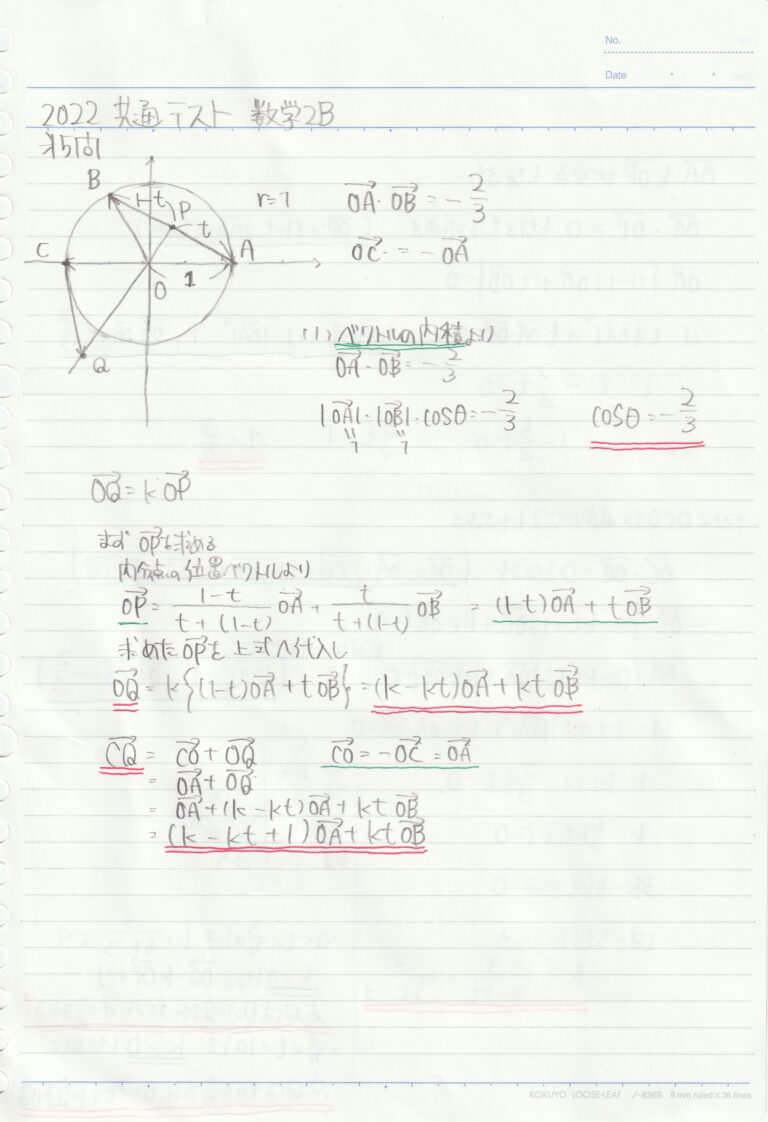 No.
Date
2022 共通テスト 数学2B
第5問
B
1-t
P
t
C
A
O
1
Q
r=1
OA・OB = -2/3
OC = -OA
(1) ベクトルの内積より
OA・OB = -2/3
|OA|・|OB|・cosθ = -2/3
cosθ = -2/3
1 1
OQ = kOP
まずOPを求める
内分点の位置ベクトルより
OP = (1-t)/(t+(1-t)) OA + t/(t+(1-t)) OB = (1-t)OA + tOB
求めたOPを上式へ代入し
OQ = k{(1-t)OA + tOB} = (k-kt)OA + ktOB
CQ = CO + OQ
CO = -OC = OA
= OA + OQ
= OA + (k-kt)OA + ktOB
= (k-kt+1)OA + ktOB
KOKUYO LOOSE-LEAF ノ-836B 6 mm ruled×36 lines